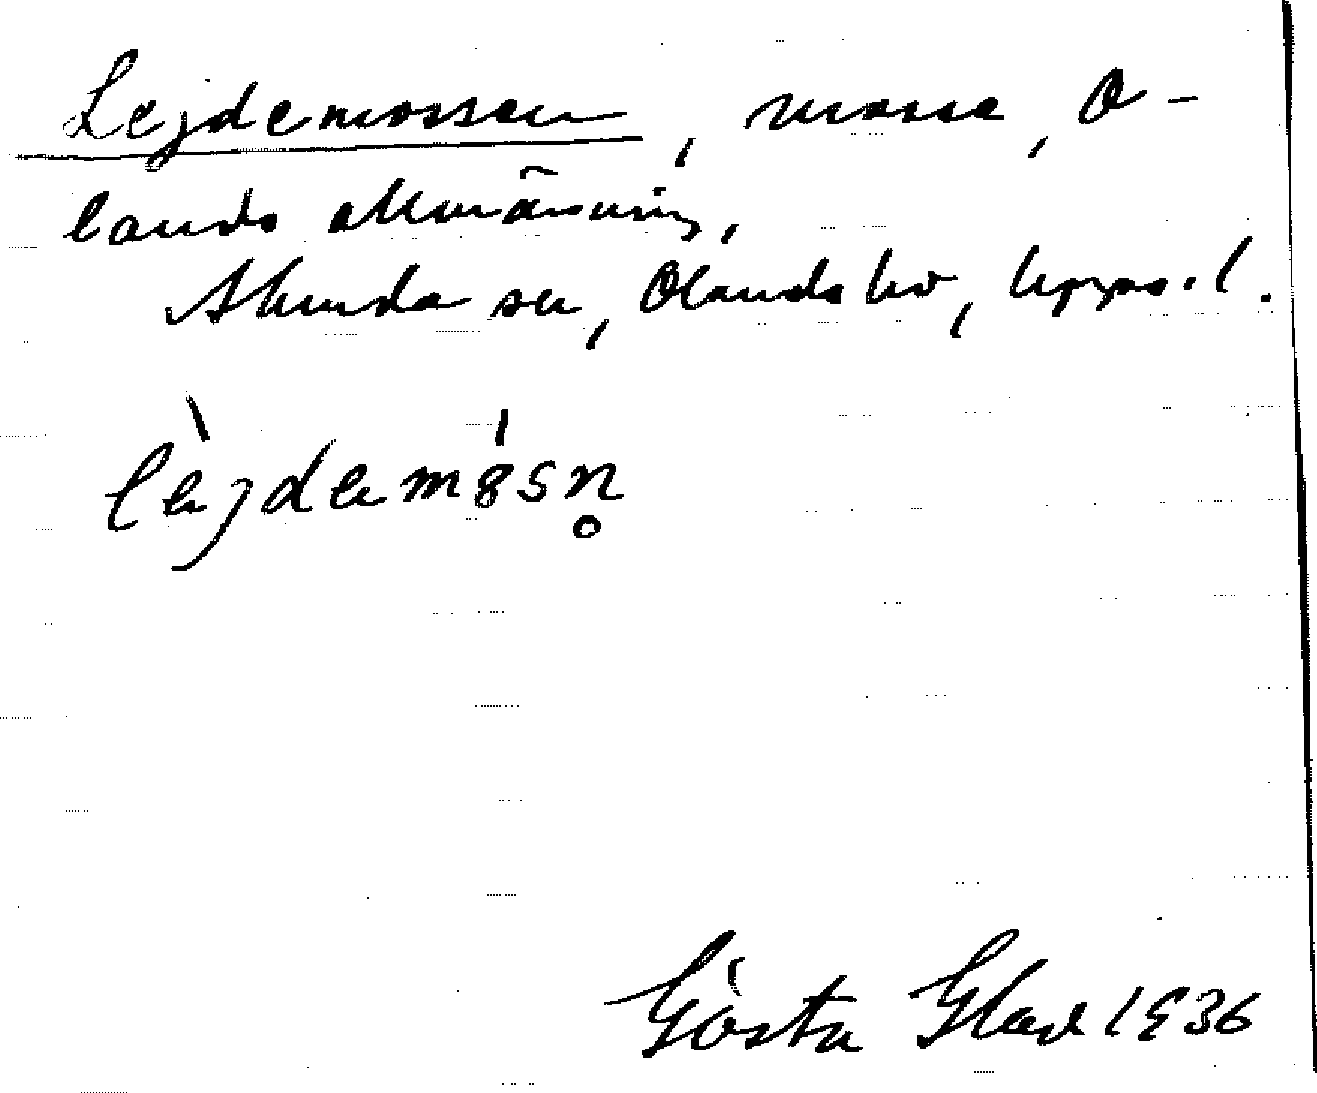 Lejdemossen, mosse, O-
lands allmänning,
Alunda sn, Olands hd, Upps. l.
lèjdemósn̥
Gösta Glad 1936